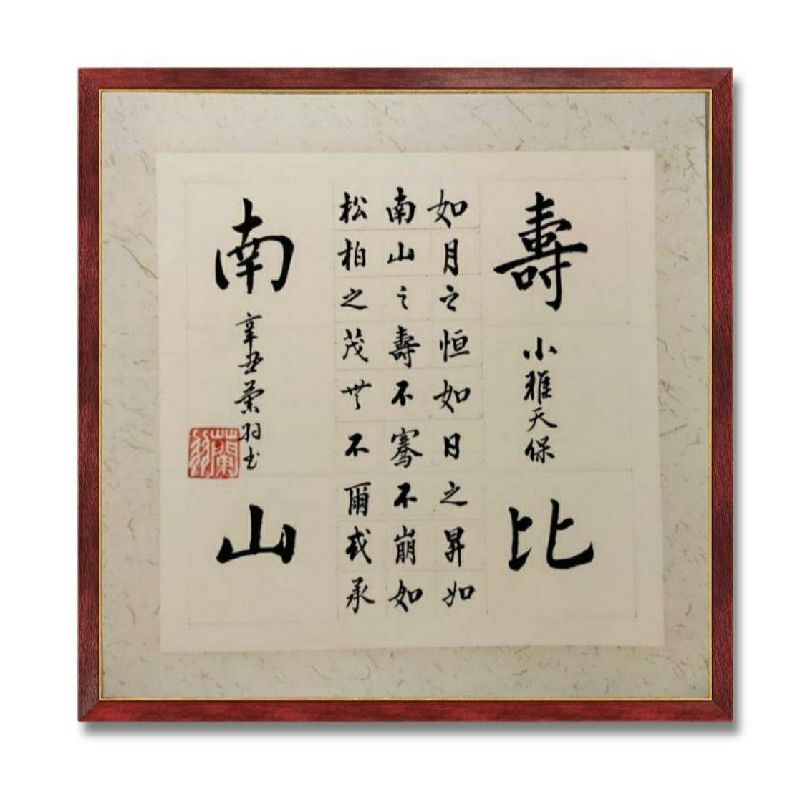 壽比
小雅天保
如月之恒如日之昇如
南山之壽不騫不崩如
松柏之茂無不爾或承
南山
辛丑蘭羽书